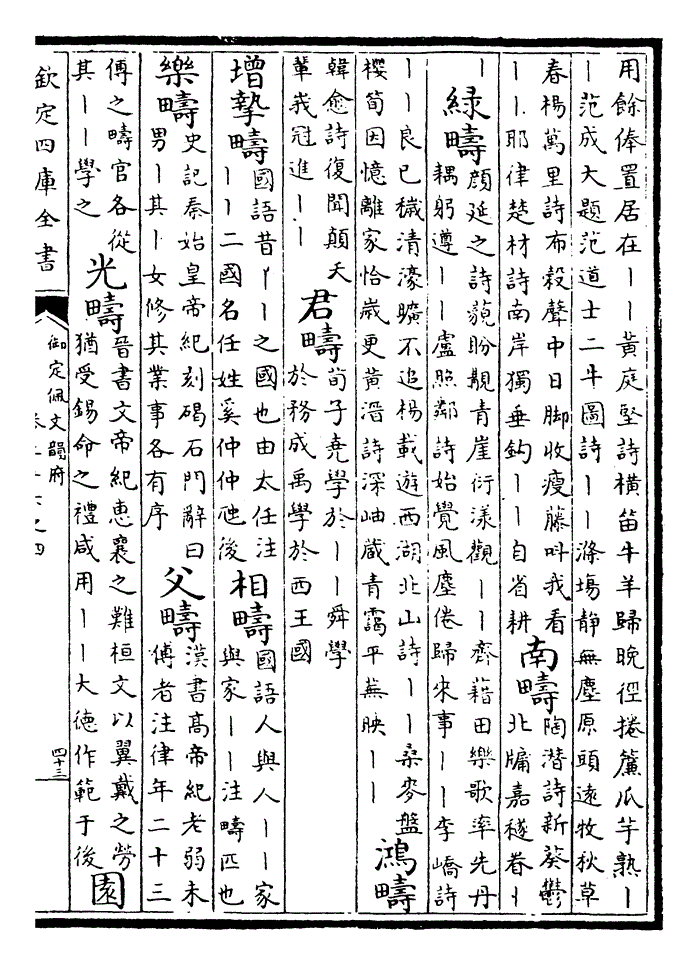 用餘俸置居在丨丨黃庭堅詩橫笛牛羊歸晚徑捲簾瓜芋熟丨
丨范成大題范道士二牛圖詩丨丨滌塲静無塵原頭遠牧秋草
春楊萬里詩布穀聲中日脚收瘦藤呌我看
丨丨耶律楚材詩南岸獨垂鈎丨丨自省耕
南疇
陶潛詩新葵鬱
北牖嘉穟眷丨
丨
綠疇
顔延之詩藐盼覯青崖衍漾觀丨丨齊藉田樂歌率先丹
耦躬遵丨丨盧照鄰詩始覺風塵倦歸來事丨丨李嶠詩
丨丨良已穢清濠曠不追楊載遊西湖北山詩丨丨桑麥盤
櫻筍因憶離家恰歲更黃溍詩深岫蔵青靄平蕪映丨丨
鴻疇
韓愈詩復聞顛夭
輩峩冠進丨丨
君疇
荀子堯學於丨丨舜學
於務成禹學於西王國
增摯疇
國語昔丨丨之國也由太任注
丨丨二國名任姓奚仲仲虺後
相疇
國語人與人丨丨家
與家丨丨注疇匹也
樂疇
史記秦始皇帝紀刻碣石門辭曰
男丨其丨女修其業事各有序
父疇
漢書髙帝紀老弱未
傅者注律年二十三
傅之疇官各從
其丨丨學之
光疇
晉書文帝紀惠襄之難桓文以翼戴之勞
猶受錫命之禮咸用丨丨大德作範于後
園
欽定四庫全書
御定佩文韻府
四十三